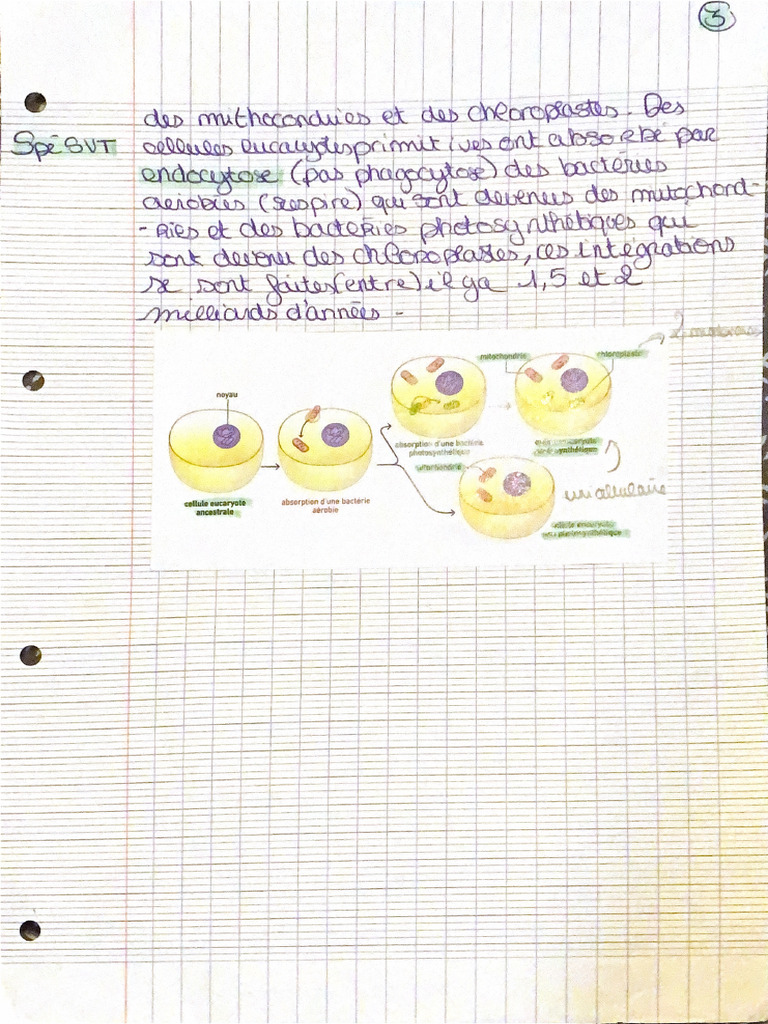 3
des muthocondries et des chloroplastes. Des
Spé SVT
cellules eucaryotes primitives ont absorbé par
endocytose (pas phagocytose) des bactéries
aérobies (respire) qui sont devenues des mitochond-
-ries et des bactéries photosynthétiques qui
sont devenu des chloroplastes, ces intégrations
se sont faites (entre) il y a 1,5 et 2
milliards d'années -
2 membranes
mitochondrie
chloroplaste
noyau
absorption d'une bactérie
photosynthétique
cellule eucaryote
photosynthétique
mitochondrie
unicellulaire
cellule eucaryote
ancestrale
absorption d'une bactérie
aérobie
cellule eucaryote
non photosynthétique